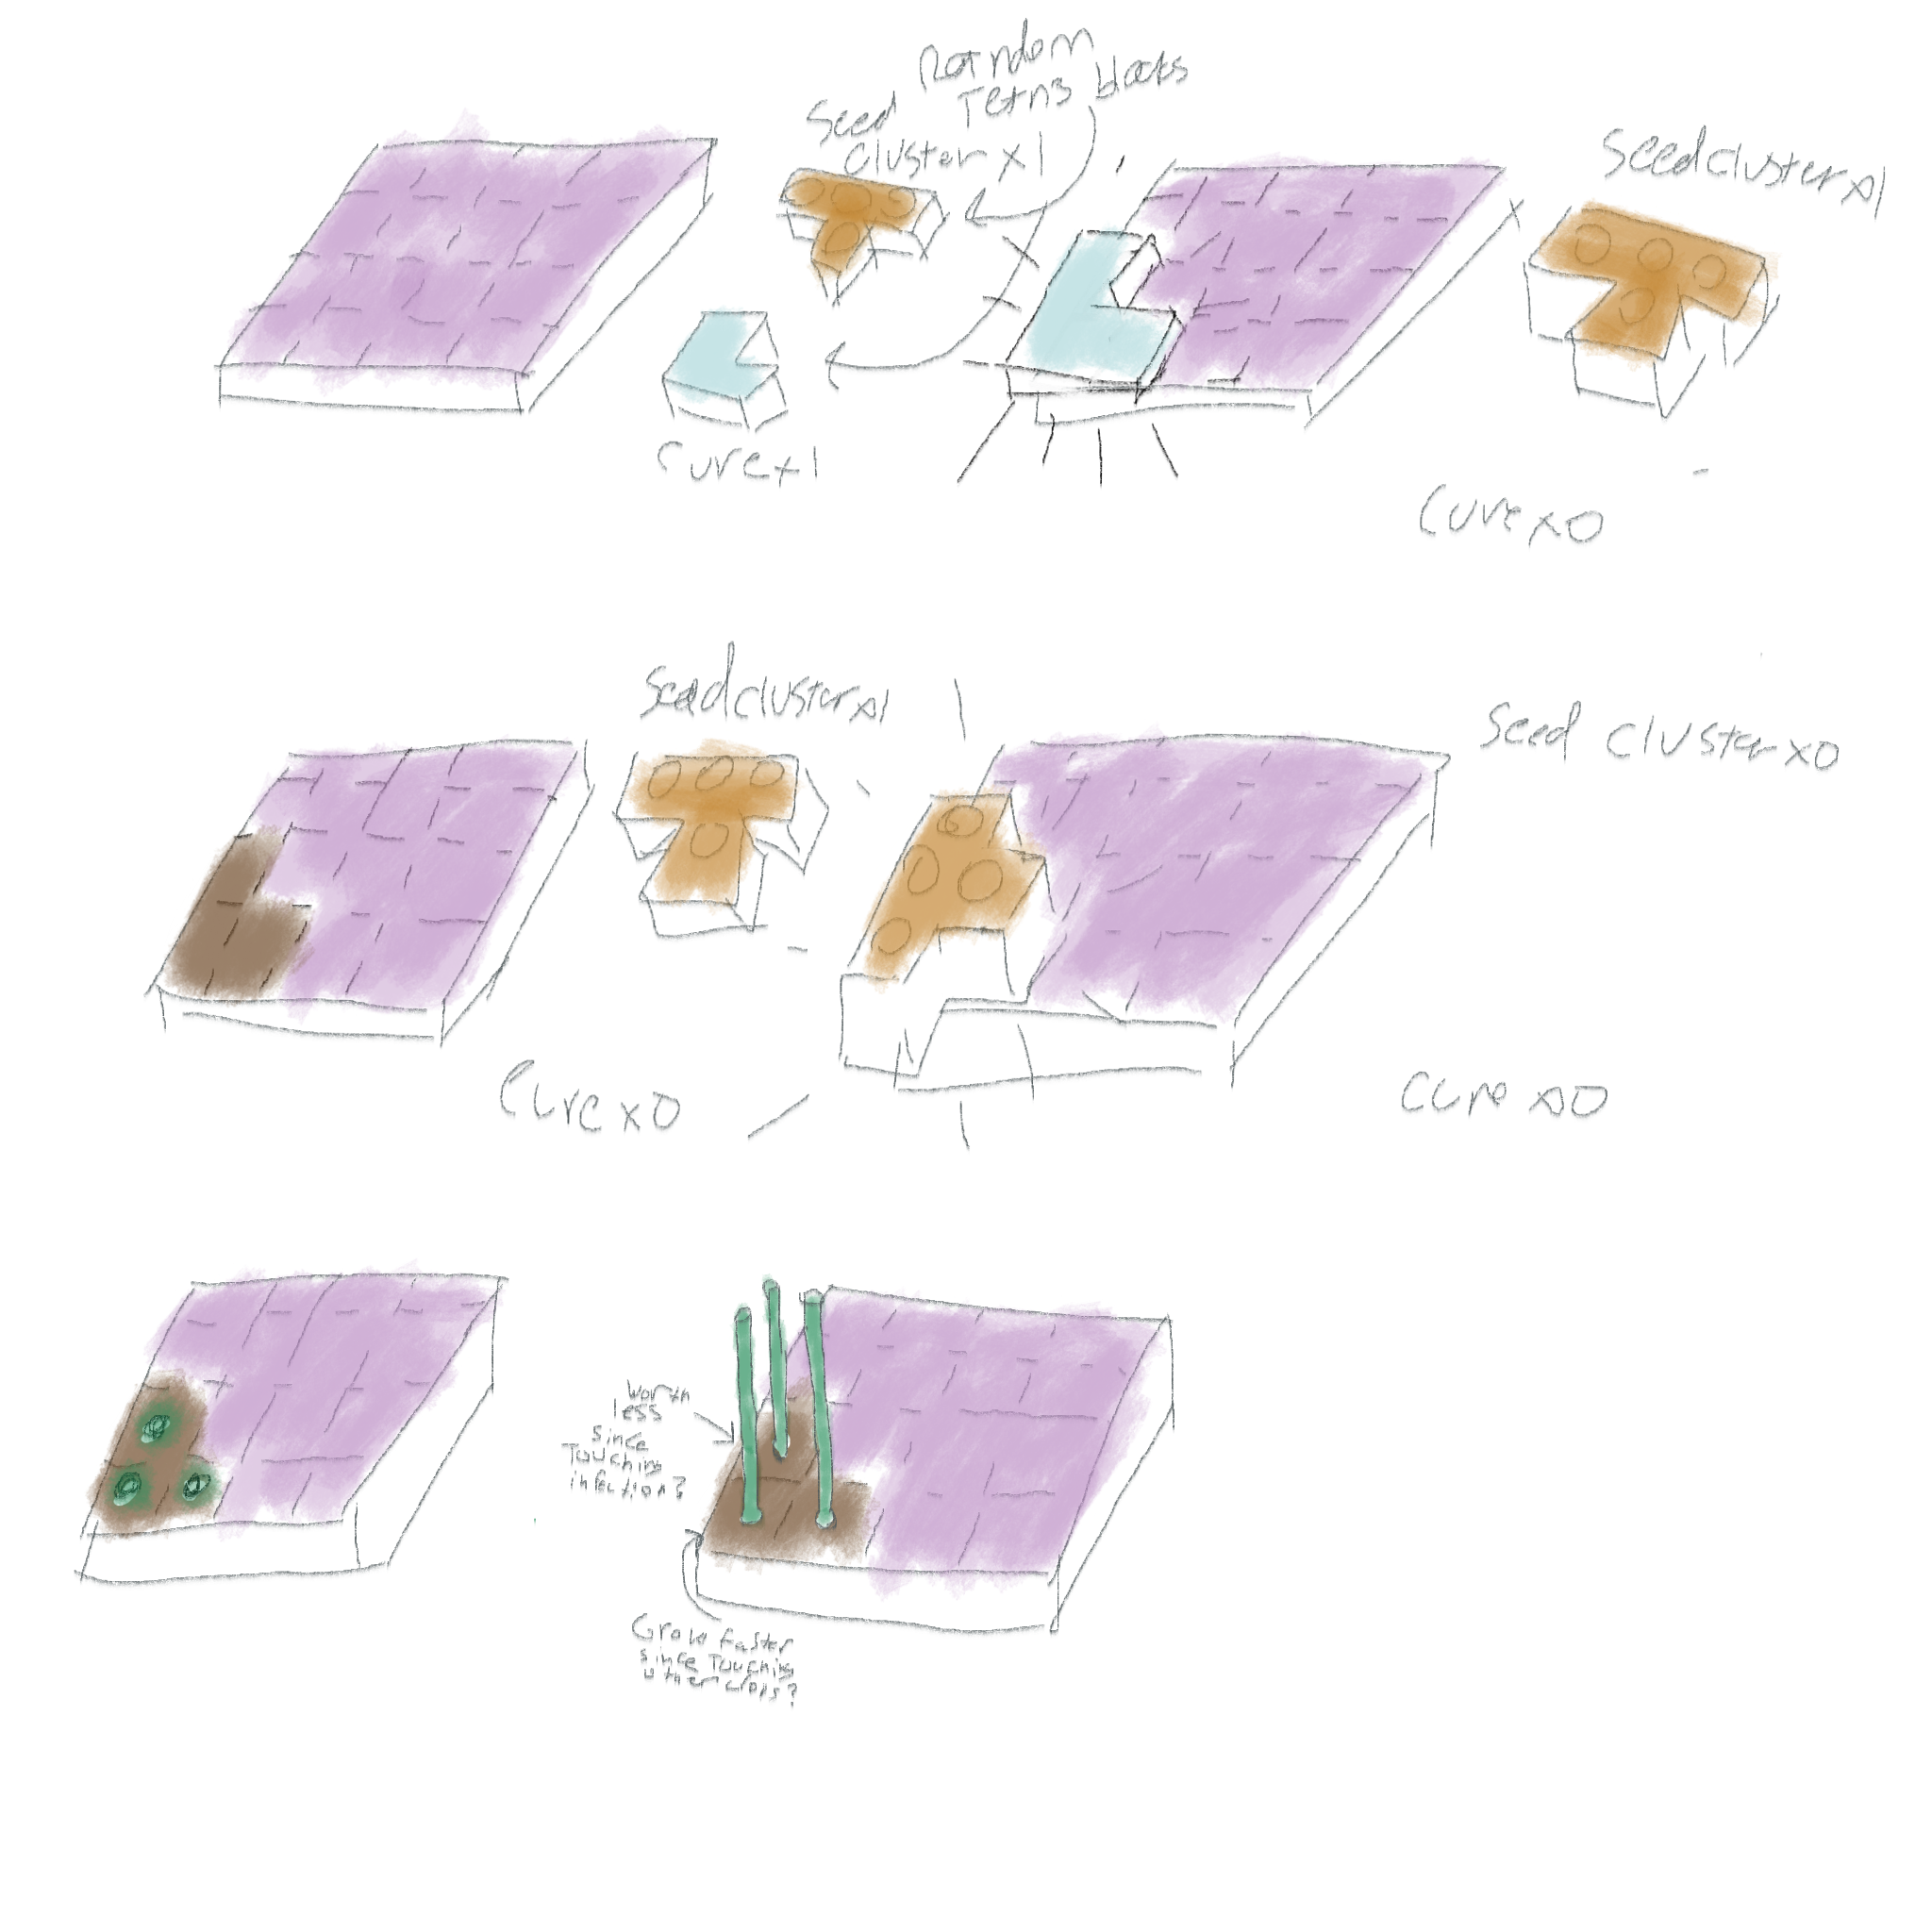 Random
Tetris blocks
Seed
cluster x1
Seed cluster x1
Cure x1
Cure x0
Seed cluster x1
Seed cluster x0
Cure x0
Cure x0
Worth
less
since
Touching
infection?
Grow faster
since Touching
other crops?